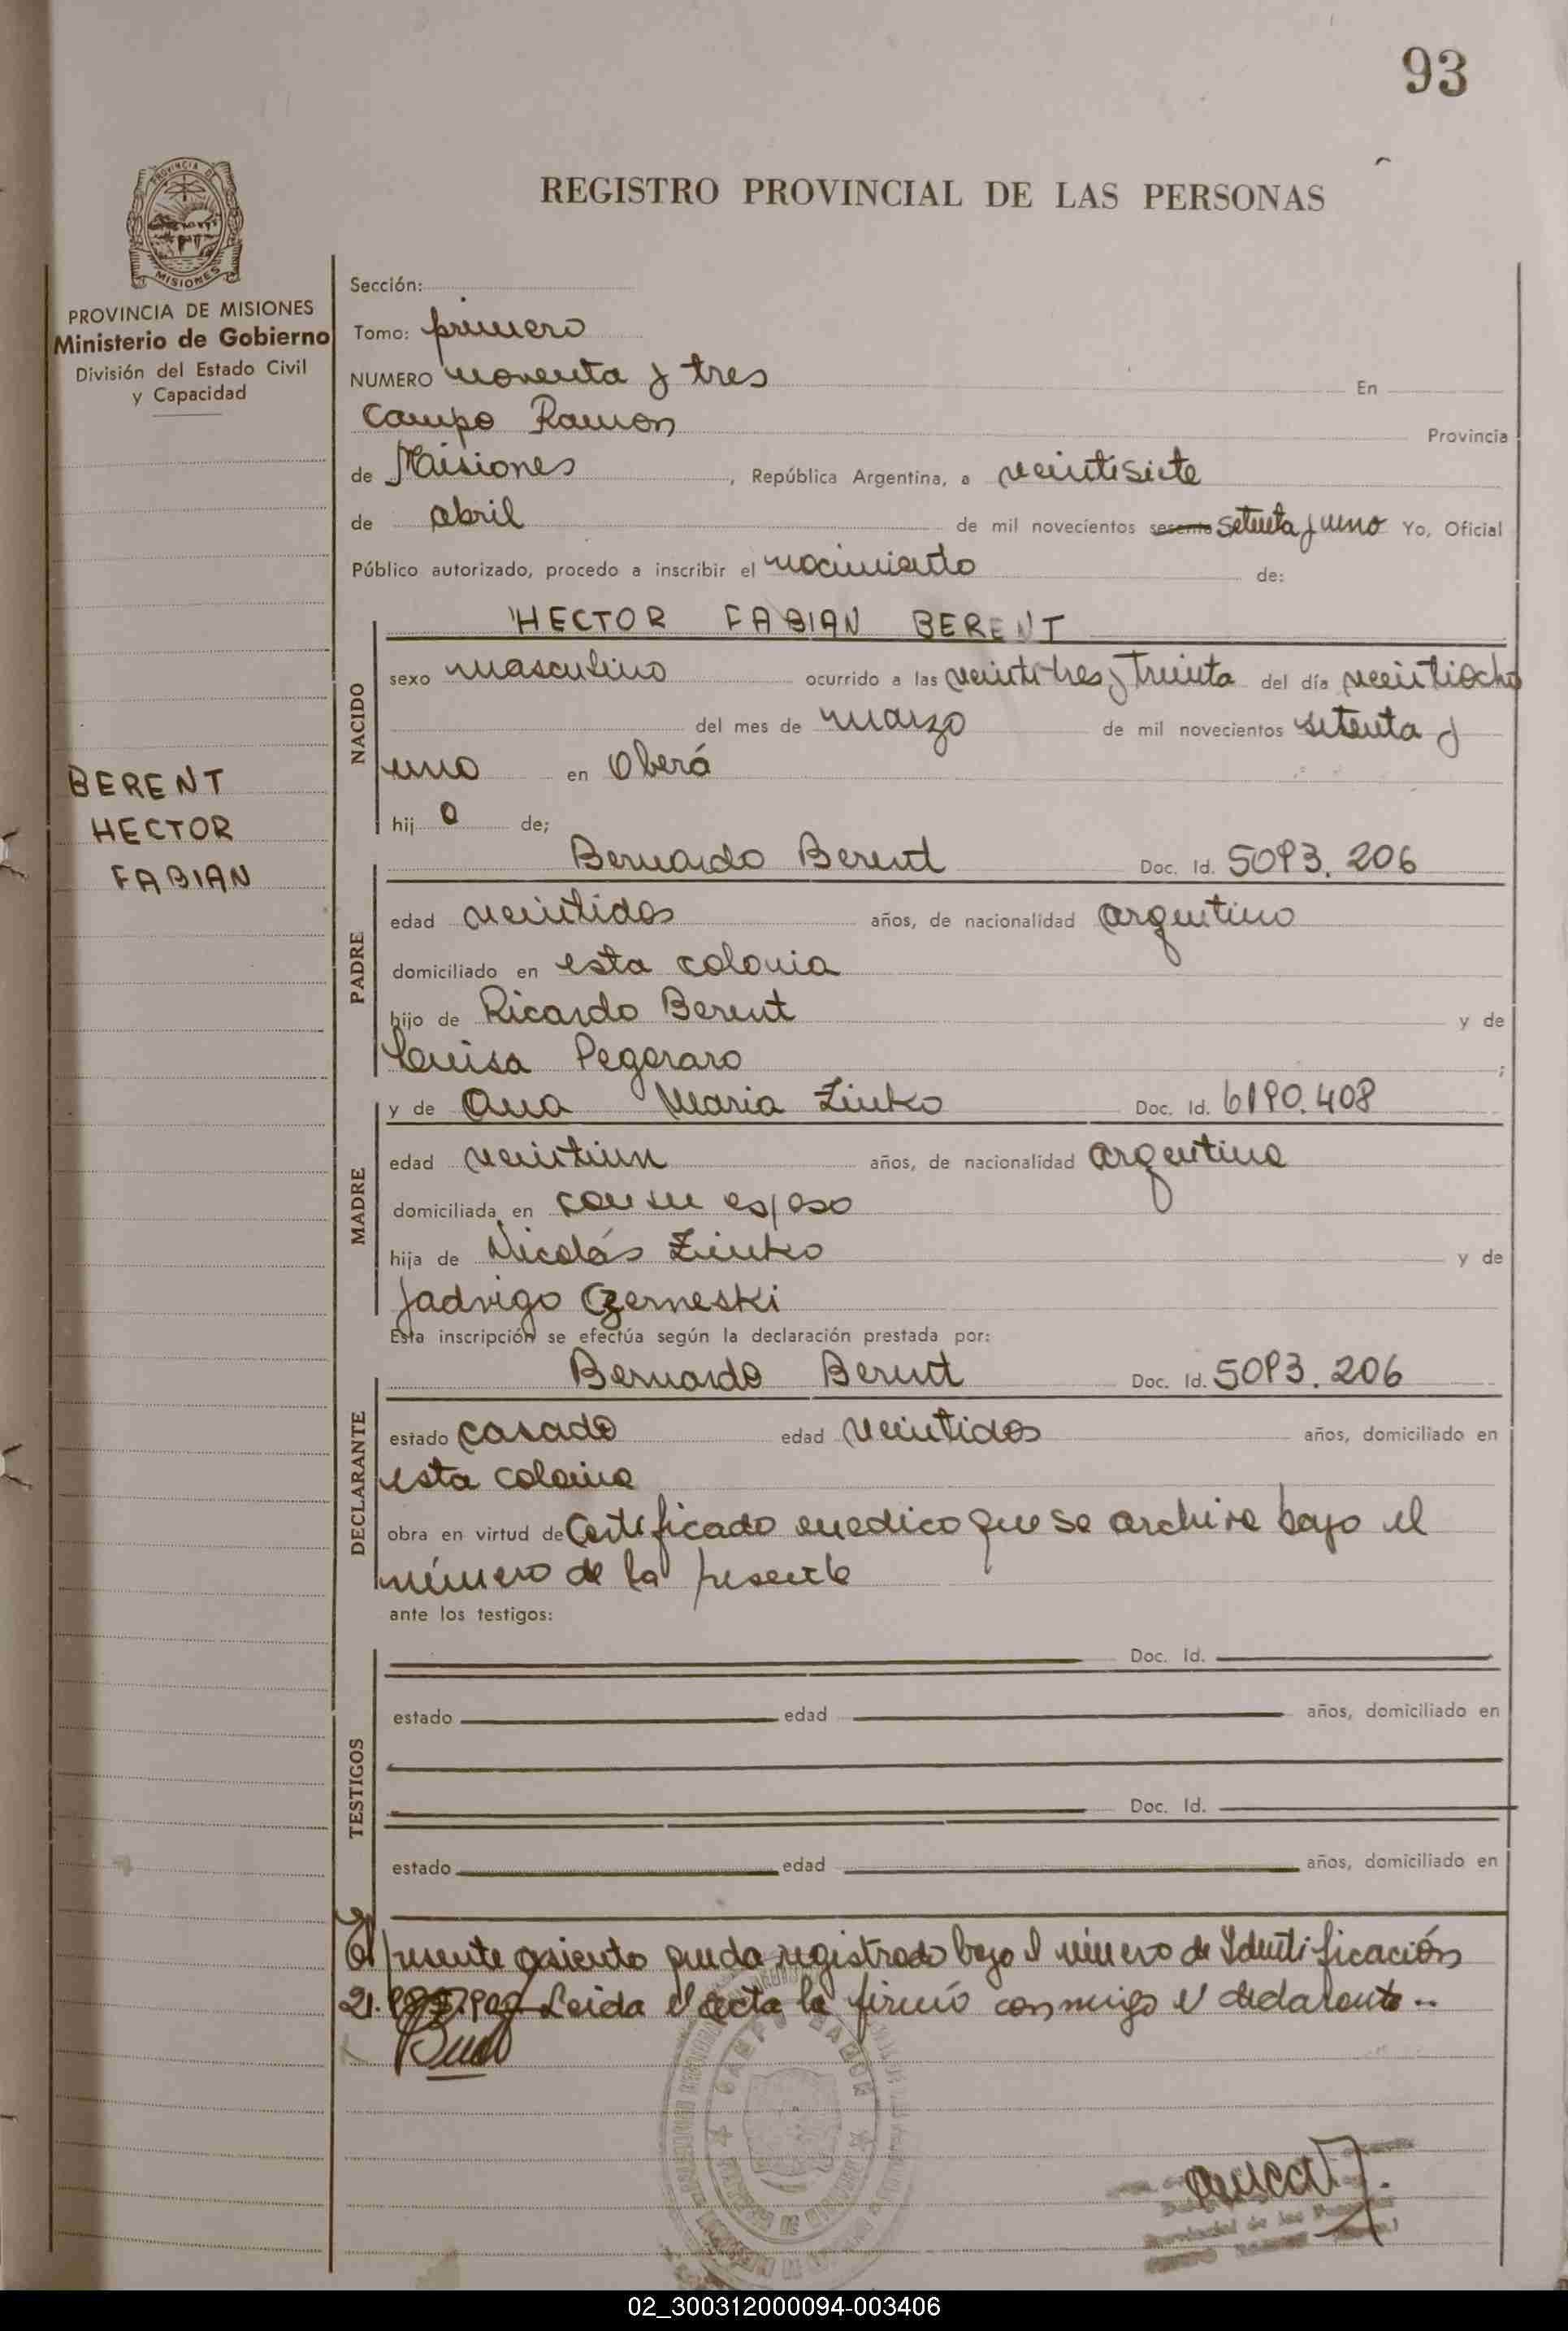 93
PROVINCIA DE
MISIONES
REGISTRO PROVINCIAL DE LAS PERSONAS
PROVINCIA DE MISIONES
Ministerio de Gobierno
División del Estado Civil
y Capacidad
BERENT
HECTOR
FABIAN
Sección:
Tomo: primero
NUMERO noventa y tres En
Campo Ramon Provincia
de Misiones, República Argentina, a veintisiete
de abril de mil novecientos sesenta setenta y uno Yo, Oficial
Público autorizado, procedo a inscribir el nacimiento de:
NACIDO
HECTOR FABIAN BERENT
sexo masculino ocurrido a las veintitres y treinta del día veintiocho
del mes de marzo de mil novecientos setenta y
uno en Oberá
hij o de;
PADRE
Bernardo Berent Doc. Id. 5093.206
edad veintidos años, de nacionalidad argentino
domiciliado en esta colonia
hijo de Ricardo Berent y de
Luisa Pegoraro ;
MADRE
y de Ana Maria Zinko Doc. Id. 6190.408
edad veintiun años, de nacionalidad argentina
domiciliada en con su esposo
hija de Nicolás Zinko y de
Jadvigo Czerneski
Esta inscripción se efectúa según la declaración prestada por:
DECLARANTE
Bernardo Berent Doc. Id. 5093.206
estado casado edad veintidos años, domiciliado en
esta colonia
obra en virtud de Certificado medico que se archiva bajo el
número de la presente
ante los testigos:
TESTIGOS
Doc. Id.
estado edad años, domiciliado en
Doc. Id.
estado edad años, domiciliado en
El presente asiento queda registrado bajo el número de Identificación
21. Leida el acta la firmó conmigo el declarante..
CAMPO RAMON
02_300312000094-003406